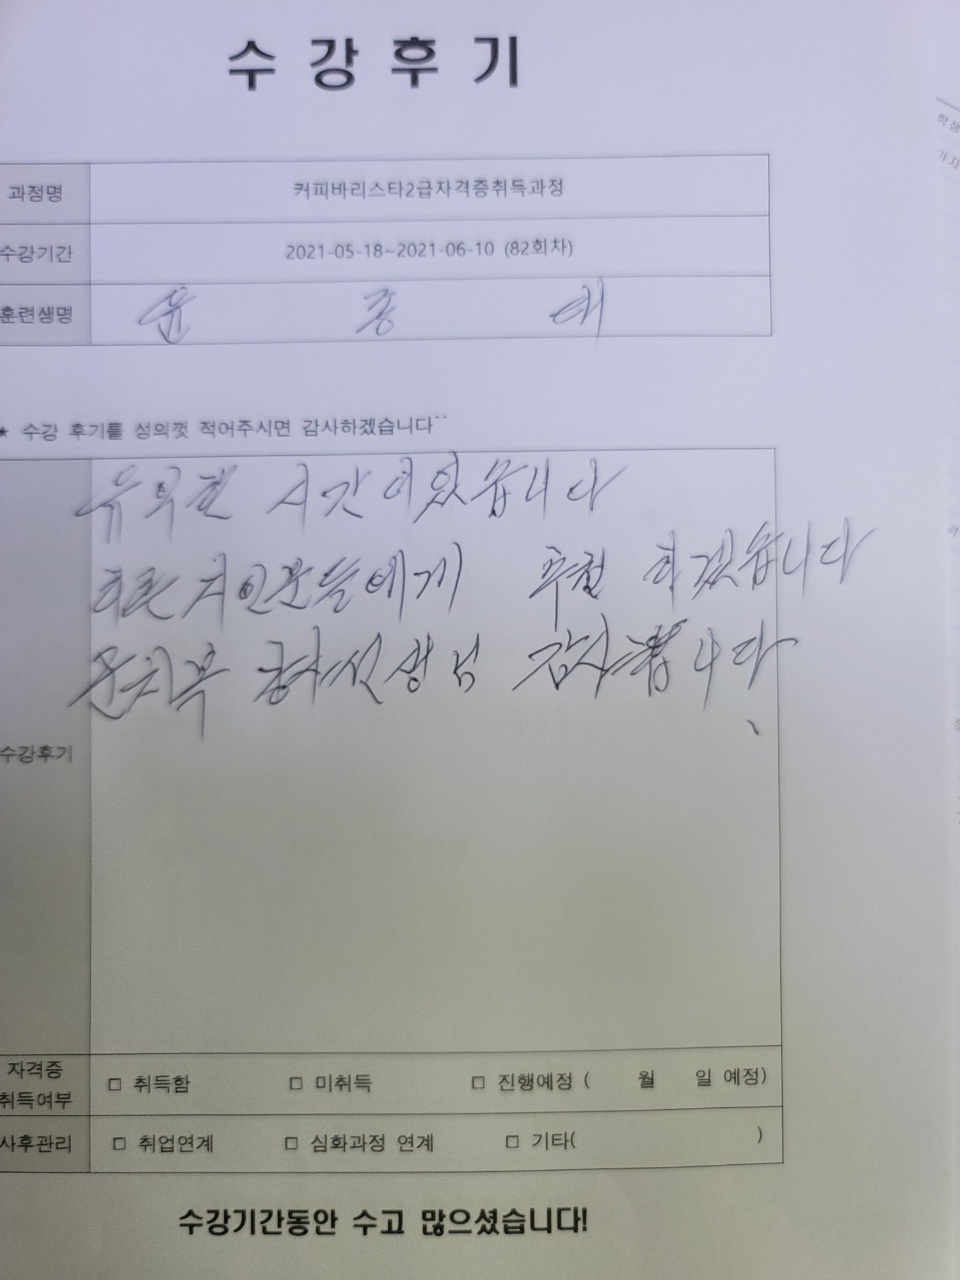 수강후기
과정명 커피바리스타2급자격증취득과정
수강기간 2021-05-18~2021-06-10 (82회차)
훈련생명 윤 종 태
★ 수강 후기를 성의껏 적어주시면 감사하겠습니다^^
유익한 시간이었습니다
지인분들에게 추천 하겠습니다
강사선생님 감사합니다
수강후기
자격증
취득여부 □ 취득함 □ 미취득 □ 진행예정 ( 월 일 예정)
사후관리 □ 취업연계 □ 심화과정 연계 □ 기타( )
수강기간동안 수고 많으셨습니다!